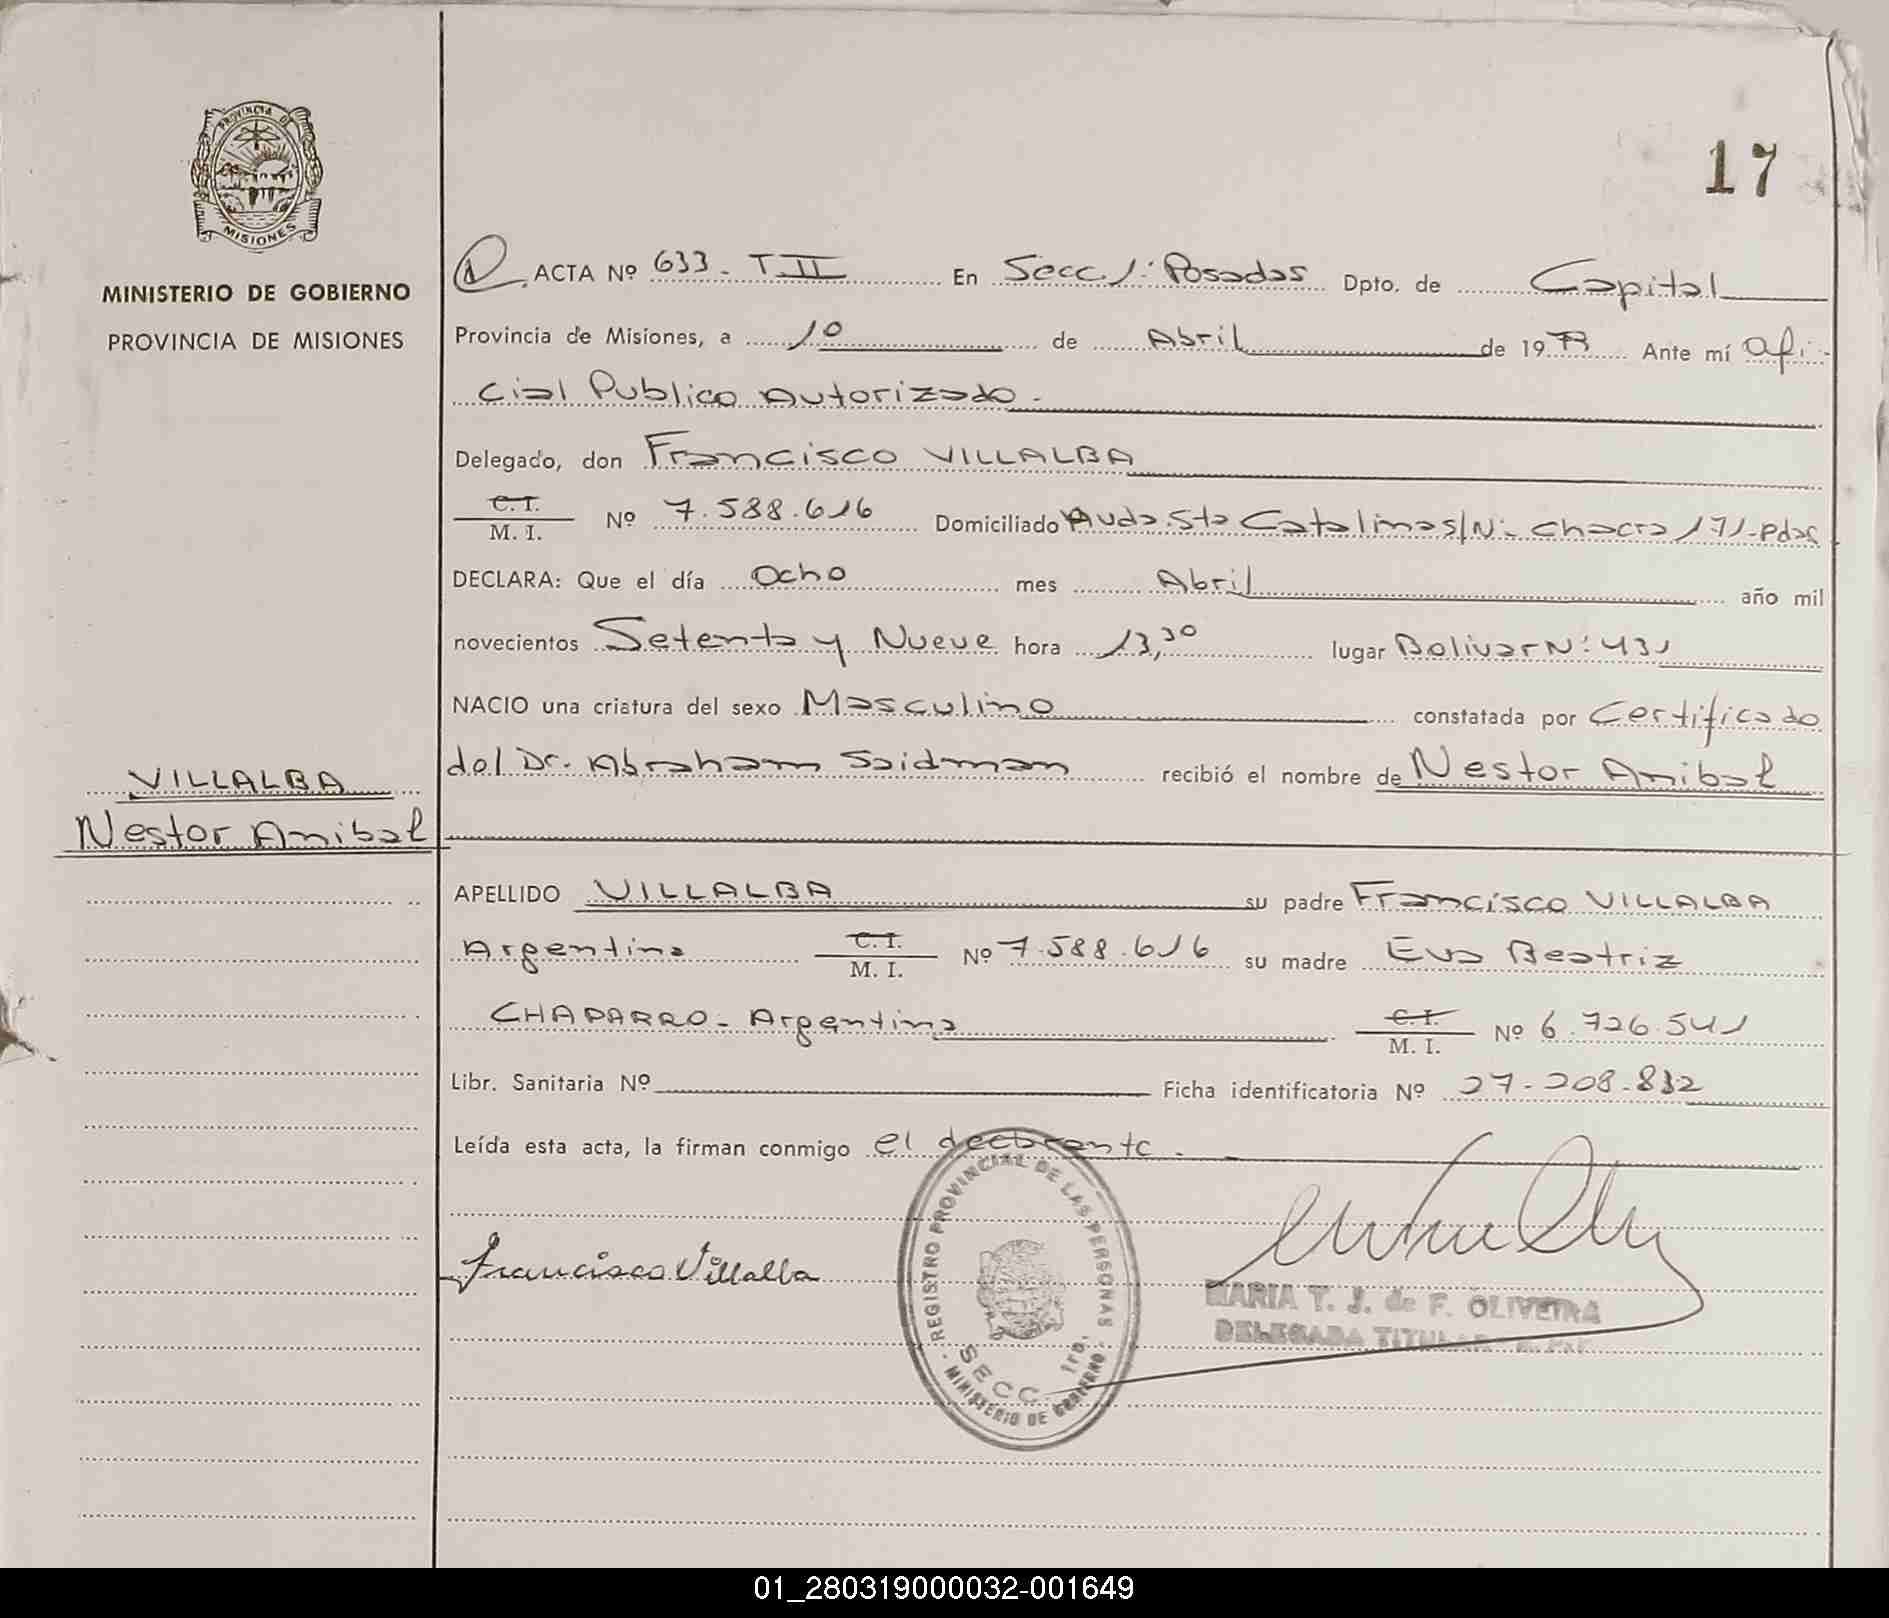 PROVINCIA DE
MISIONES
MINISTERIO DE GOBIERNO
PROVINCIA DE MISIONES
VILLALBA
Nestor Anibal
17
1 ACTA Nº 633 - T II En Secc. 1: Posadas Dpto. de Capital
Provincia de Misiones, a 10 de Abril de 1979 Ante mí Ofi-
cial Publico Autorizado.
Delegado, don Francisco VILLALBA
C. I.
M. I. Nº 7.588.616 Domiciliado Avda. Sta Catalina s/N- Chacra 171-Pdas
DECLARA: Que el día Ocho mes Abril año mil
novecientos Setenta y Nueve hora 13,30 lugar Bolivar Nº 431
NACIO una criatura del sexo Masculino constatada por Certificado
del Dr. Abraham Saidman recibió el nombre de Nestor Anibal
APELLIDO VILLALBA su padre Francisco VILLALBA
Argentina C. I. M. I. Nº 7.588.616 su madre Eva Beatriz
CHAPARRO - Argentina C. I. M. I. Nº 6.726.541
Libr. Sanitaria Nº Ficha identificatoria Nº 27-208.832
Leída esta acta, la firman conmigo el declarante.
Francisco Villalba
REGISTRO PROVINCIAL DE LAS PERSONAS
SECC. 1ra.
MINISTERIO DE GOBIERNO
MARIA T. J. de F. OLIVEIRA
DELEGADA TITULAR
01_280319000032-001649